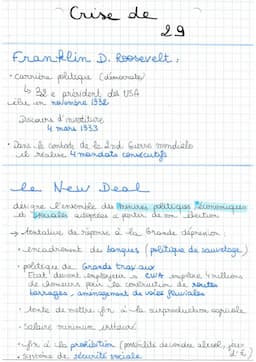 Crise de
29
Franklin D. Roosevelt :
• carrière politique (démocrate)
↳ 32e président des USA
élu en novembre 1932
Discours d'investiture
4 mars 1933
• Dans le contexte de la 2nd Guerre mondiale
il réalise 4 mandats consécutifs
Le New Deal
désigne l'ensemble des mesures politiques économiques
et sociales adoptées à partir de son élection
→ tentative de réponse à la Grande dépression :
• encadrement des banques (politique de sauvetage)
• politique de Grands travaux
Etat devient employeur → CWA emploie 4 millions
de chômeurs pour la construction de routes
barrages, aménagement de voies fluviales
• tente de mettre fin à la surproduction agricole
• Salaire minimum instauré
• fin à la prohibition (possibilité de vendre alcool, peu
d'°)
• système de sécurité sociale